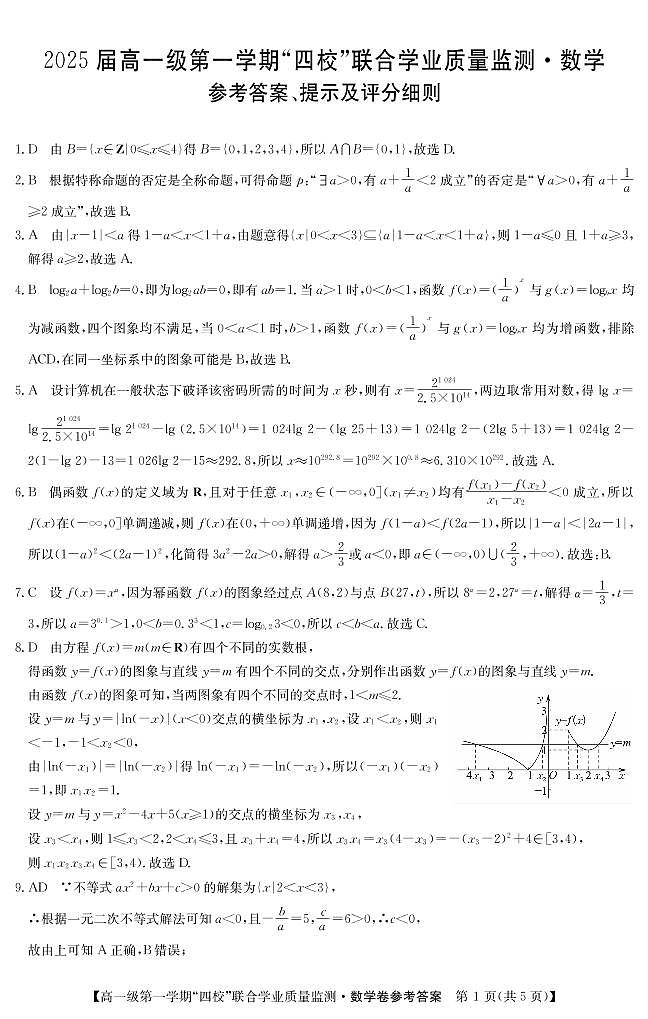 2025 届高一级第一学期“四校”联合学业质量监测·数学
参考答案、提示及评分细则
1. D 由 B={x∈Z|0≤x≤4}得 B={0,1,2,3,4},所以 A∩B={0,1},故选 D.
2. B 根据特称命题的否定是全称命题,可得命题 p:“∃a>0,有 a+1/a<2 成立”的否定是“∀a>0,有 a+1/a
≥2 成立”,故选 B.
3. A 由|x-1|<a 得 1-a<x<1+a,由题意得{x|0<x<3}⊆{a|1-a<x<1+a},则 1-a≤0 且 1+a≥3,
解得 a≥2,故选 A.
4. B log₂a+log₂b=0,即为log₂ab=0,即有 ab=1. 当 a>1 时,0<b<1,函数 f(x)=(1/a)^x 与 g(x)=log_b x 均
为减函数,四个图象均不满足,当 0<a<1 时,b>1,函数 f(x)=(1/a)^x 与 g(x)=log_b x 均为增函数,排除
ACD,在同一坐标系中的图象可能是 B,故选 B.
5. A 设计算机在一般状态下破译该密码所需的时间为 x 秒,则有 x=2^{1 024}/(2.5×10^{14}),两边取常用对数,得 lg x=
lg 2^{1 024}/(2.5×10^{14})=lg 2^{1 024}-lg (2.5×10^{14})=1 024lg 2-(lg 25+13)=1 024lg 2-(2lg 5+13)=1 024lg 2-
2(1-lg 2)-13=1 026lg 2-15≈292.8,所以 x≈10^{292.8}=10^{292}×10^{0.8}≈6.310×10^{292}. 故选 A.
6. B 偶函数 f(x)的定义域为 R,且对于任意 x₁,x₂∈(-∞,0](x₁≠x₂)均有(f(x₁)-f(x₂))/(x₁-x₂)<0 成立,所以
f(x)在(-∞,0]单调递减,则 f(x)在(0,+∞)单调递增,因为 f(1-a)<f(2a-1),所以|1-a|<|2a-1|,
所以(1-a)²<(2a-1)²,化简得 3a²-2a>0,解得 a>2/3或 a<0,即 a∈(-∞,0)∪(2/3,+∞). 故选:B.
7. C 设 f(x)=x^α,因为幂函数 f(x)的图象经过点 A(8,2)与点 B(27,t),所以 8^α=2,27^α=t,解得 α=1/3,t=
3,所以 a=3^{0.1}>1,0<b=0.3^3<1,c=log_{0.2}3<0,所以 c<b<a. 故选 C.
8. D 由方程 f(x)=m(m∈R)有四个不同的实数根,
得函数 y=f(x)的图象与直线 y=m 有四个不同的交点,分别作出函数 y=f(x)的图象与直线 y=m.
由函数 f(x)的图象可知,当两图象有四个不同的交点时,1<m≤2.
设 y=m 与 y=|ln(-x)|(x<0)交点的横坐标为 x₁,x₂,设 x₁<x₂,则 x₁
<-1,-1<x₂<0,
由|ln(-x₁)|=|ln(-x₂)|得 ln(-x₁)=-ln(-x₂),所以(-x₁)(-x₂)
=1,即 x₁x₂=1.
y
3
2
y=f(x)
y=m
4 x₁ 3 2 1 x₂ O 1 x₃ 2 x₄ 3 x
-1
设 y=m 与 y=x²-4x+5(x≥1)的交点的横坐标为 x₃,x₄,
设 x₃<x₄,则 1≤x₃<2,2<x₄≤3,且 x₃+x₄=4,所以 x₃x₄=x₃(4-x₃)=-(x₃-2)²+4∈[3,4),
则 x₁x₂x₃x₄∈[3,4). 故选 D.
9. AD ∵不等式 ax²+bx+c>0 的解集为{x|2<x<3},
∴根据一元二次不等式解法可知 a<0,且-b/a=5,c/a=6>0,∴c<0,
故由上可知 A 正确,B 错误;
【高一级第一学期“四校”联合学业质量监测·数学卷参考答案 第 1 页(共 5 页)】